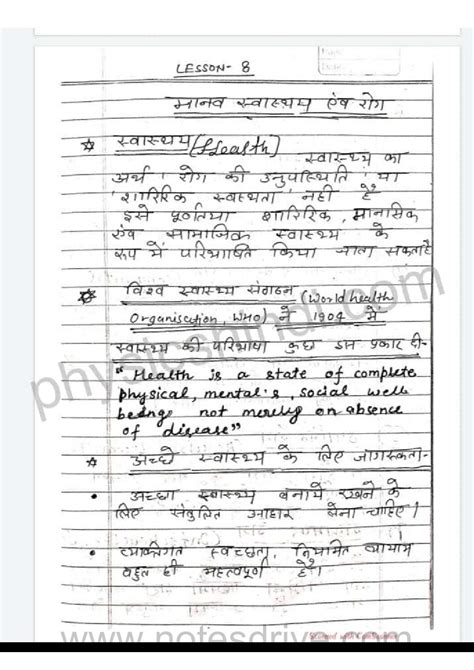 LESSON- 8
मानव स्वास्थय एंव रोग
स्वास्थय (Health)
स्वास्थ्य का
अर्थ 'रोग की अनुपस्थिति' या
'शारिरिक स्वस्थता' नहीं है
इसे पूर्णतया शारिरिक, मानसिक
एंव सामाजिक स्वास्थ्य के
रूप में परिभाषित किया जाता सकता है
विश्व स्वास्थ्य संगठन (World health
Organisation, WHO) ने 1904 में
स्वास्थ्य की परिभाषा कुछ इस प्रकार दी-
"Health is a state of complete
physical, mental's, social well
beings not merely an absence
of disease"
अच्छे स्वास्थ्य के लिए जागरुकता-
• अच्छा स्वास्थ्य बनाये रखने के
लिए संतुलित आहार लेना चाहिए।
• व्यक्तिगत स्वच्छता, नियमित व्यायाम
बहुत ही महत्वपूर्ण है।
physicshindi.com
www.notesdriv
Scanned with CamScanner